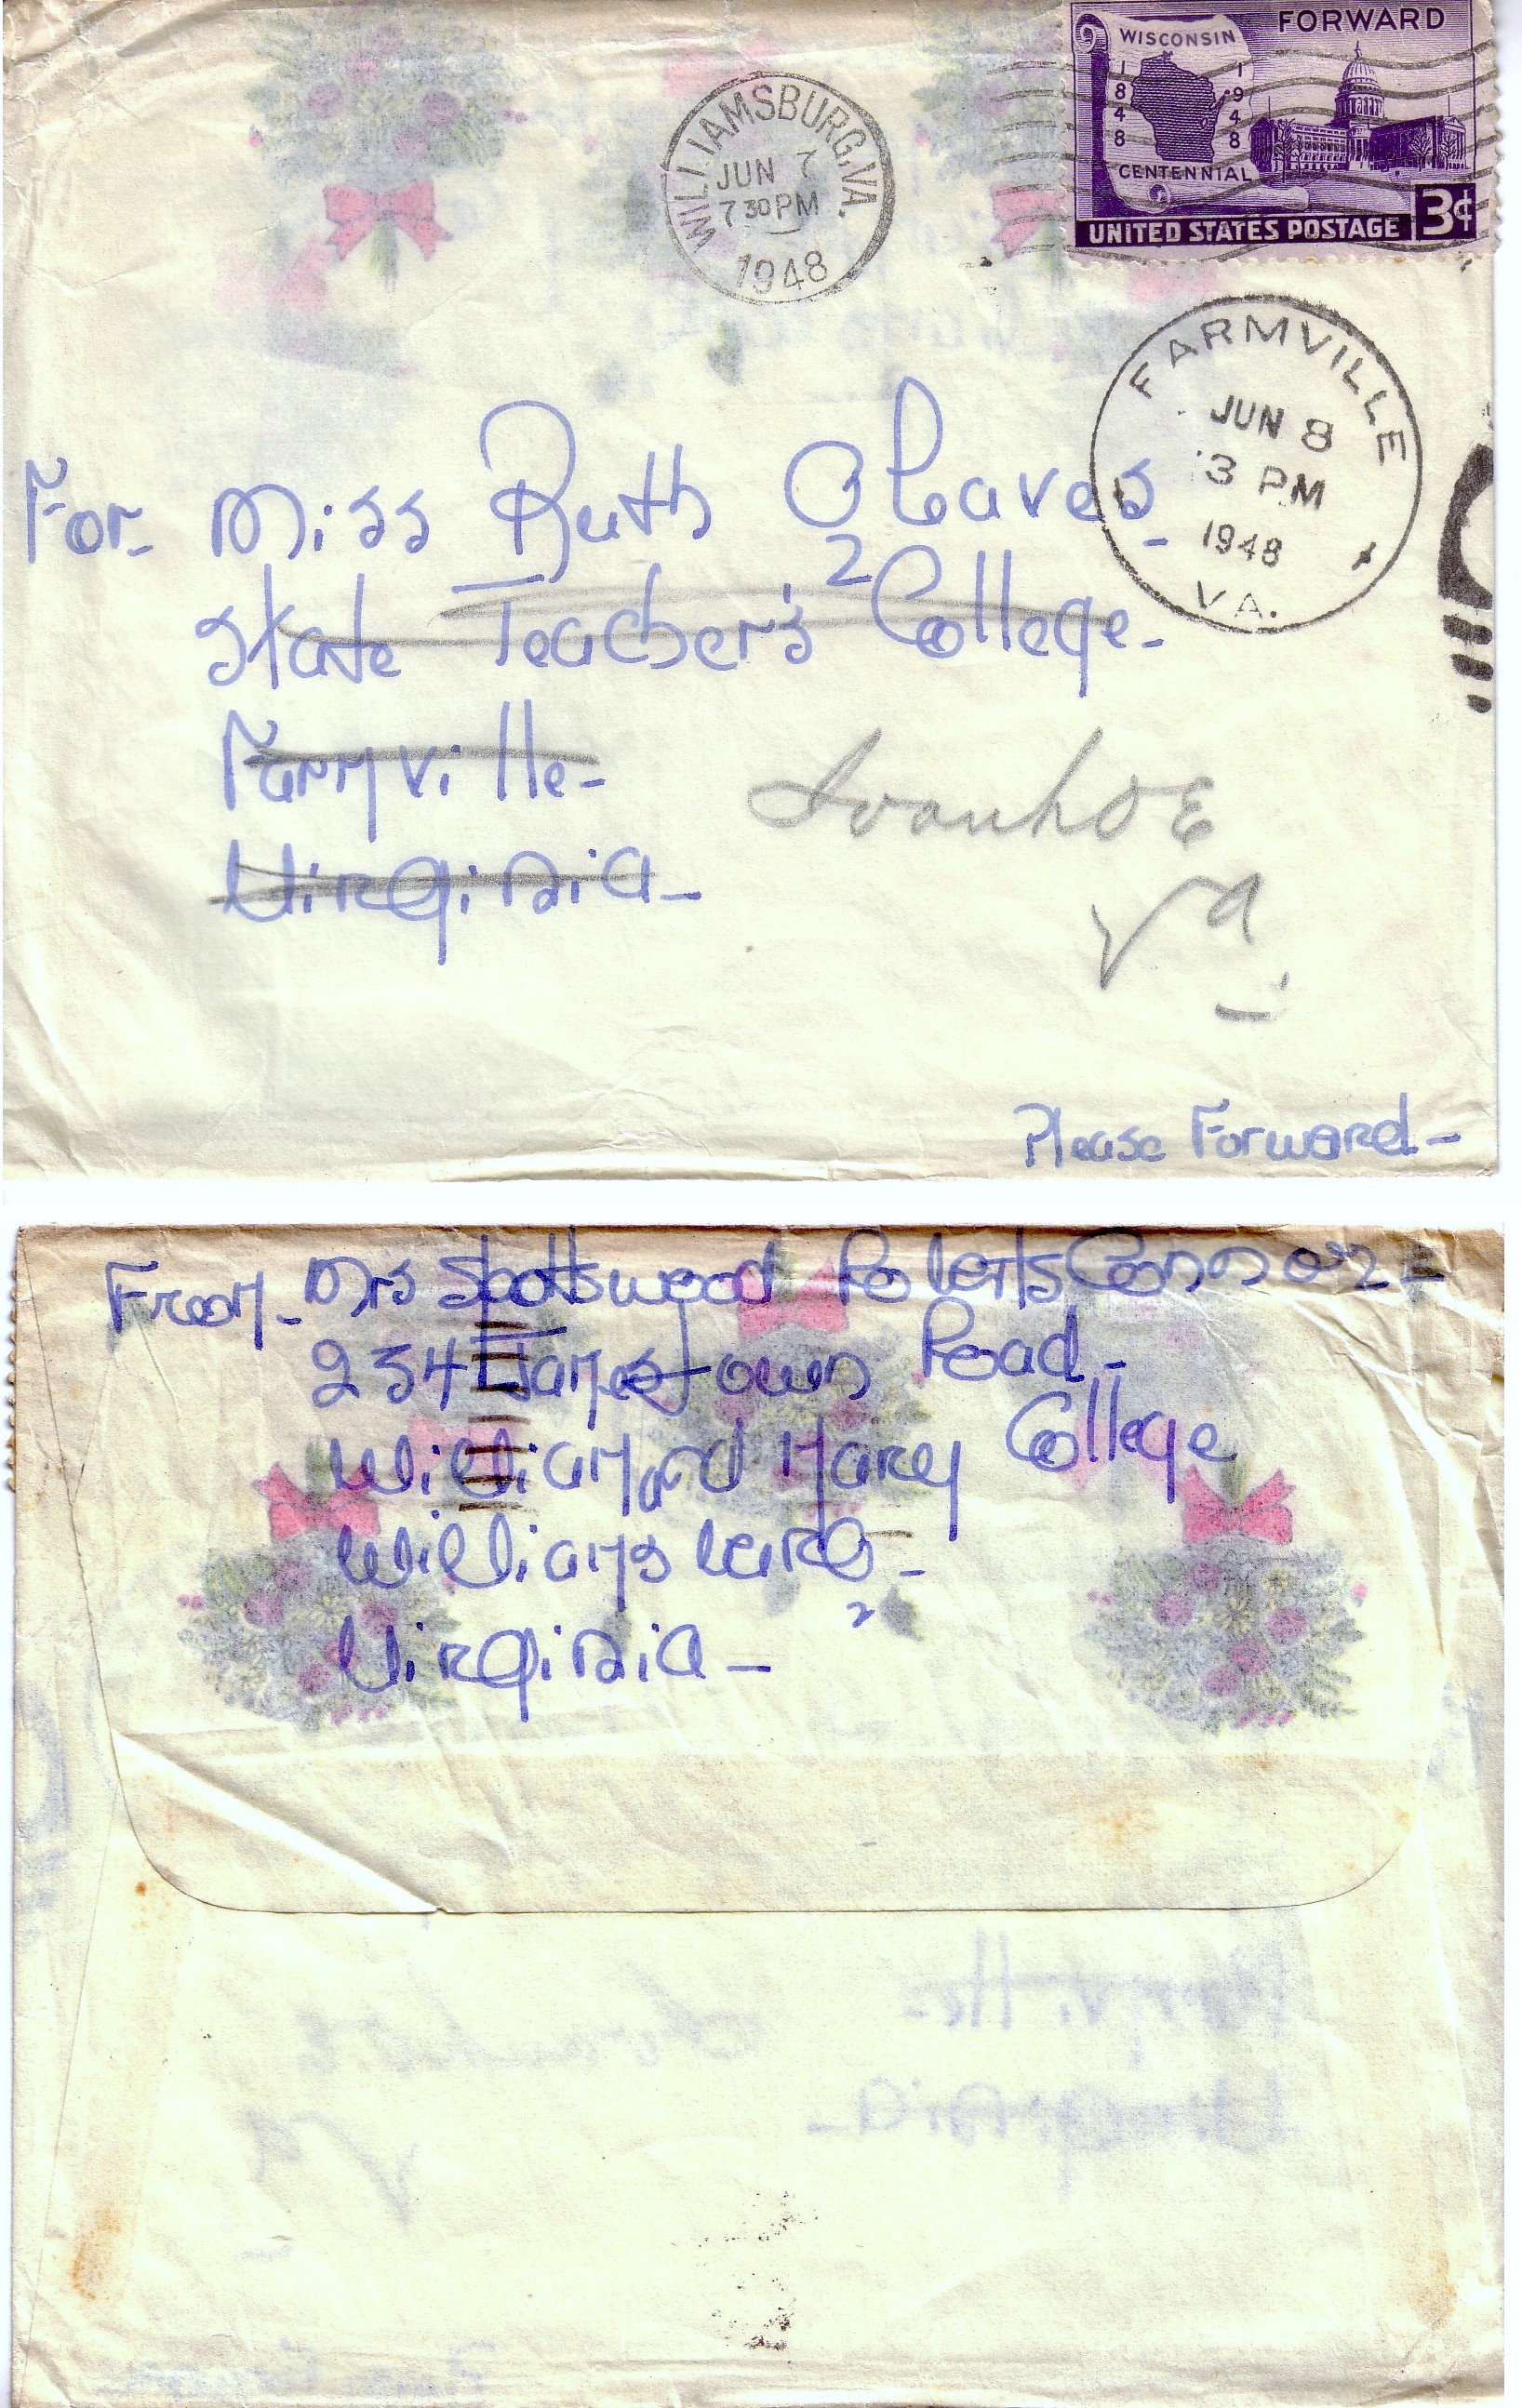 FORWARD
WISCONSIN
1848 1948
CENTENNIAL
UNITED STATES POSTAGE 3¢
WILLIAMSBURG, VA.
JUN 7
7 30 PM
1948
FARMVILLE
JUN 8
3 PM
1948
VA.
For- Miss Ruth Cleaves-
State Teacher's College-
Farmville-
Virginia-
Ivanhoe
Va.
Please Forward-
From- Mrs Spottswood Roberts Connor-
234 Jamestown Road-
William and Mary College
Williamsburg-
Virginia-